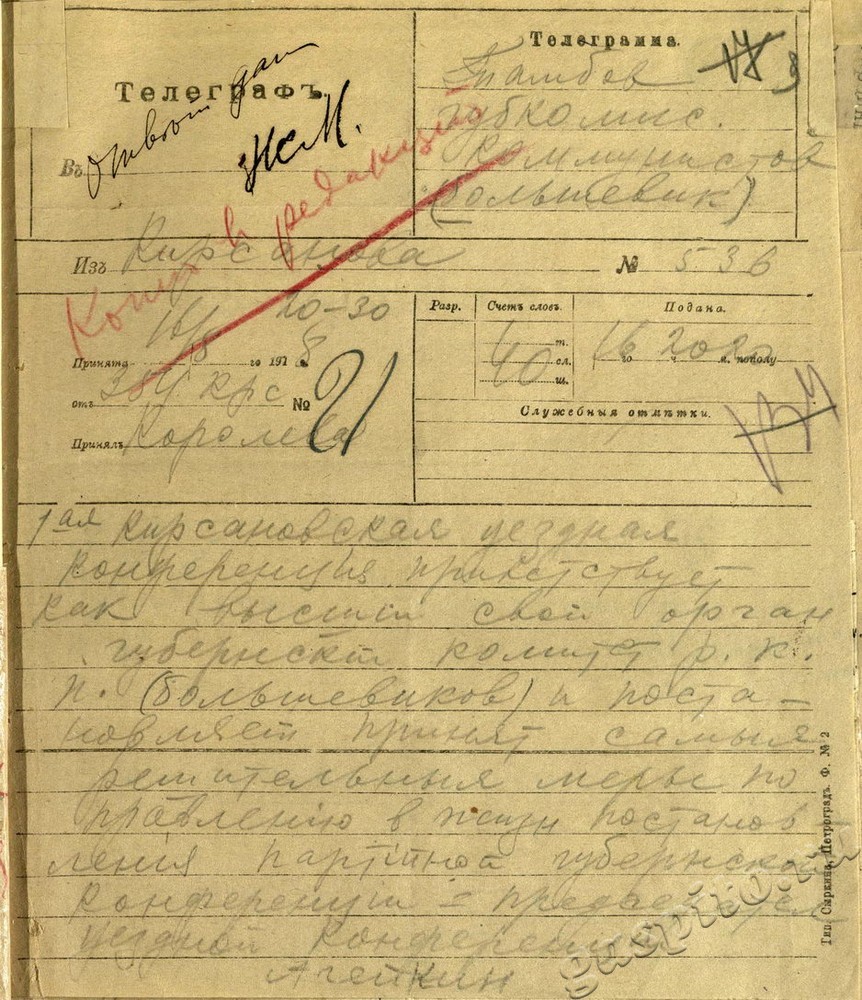 Телеграфъ.
Въ
Ответ дан
ЖМ.
Телеграмма.
Тамбов
губкомис.
коммунистов
(большевик)
Копия в редакций
Изъ Кирсанова № 536
16/8 20-30
Принята го 191 8
отъ 384 крс № 21
Принялъ Королева
Разр. Счетъ словъ. Подана.
т.
40 сл.
ш.
16 го 20 ч. 20 м. пополу
Служебныя отмѣтки.
1ая Кирсановская уездная
конференция приветствует
как высший свой орган
губернскти комитет р. к.
п. (большевиков) и поста-
новляет принят самыя
решительныя меры по
правлению в жизн постанов
ления партiиной губернской
конференции = председател
уездной конференции
Агейкин
Тип. Сыркина, Петроградъ. Ф. № 2
gaspito.ru